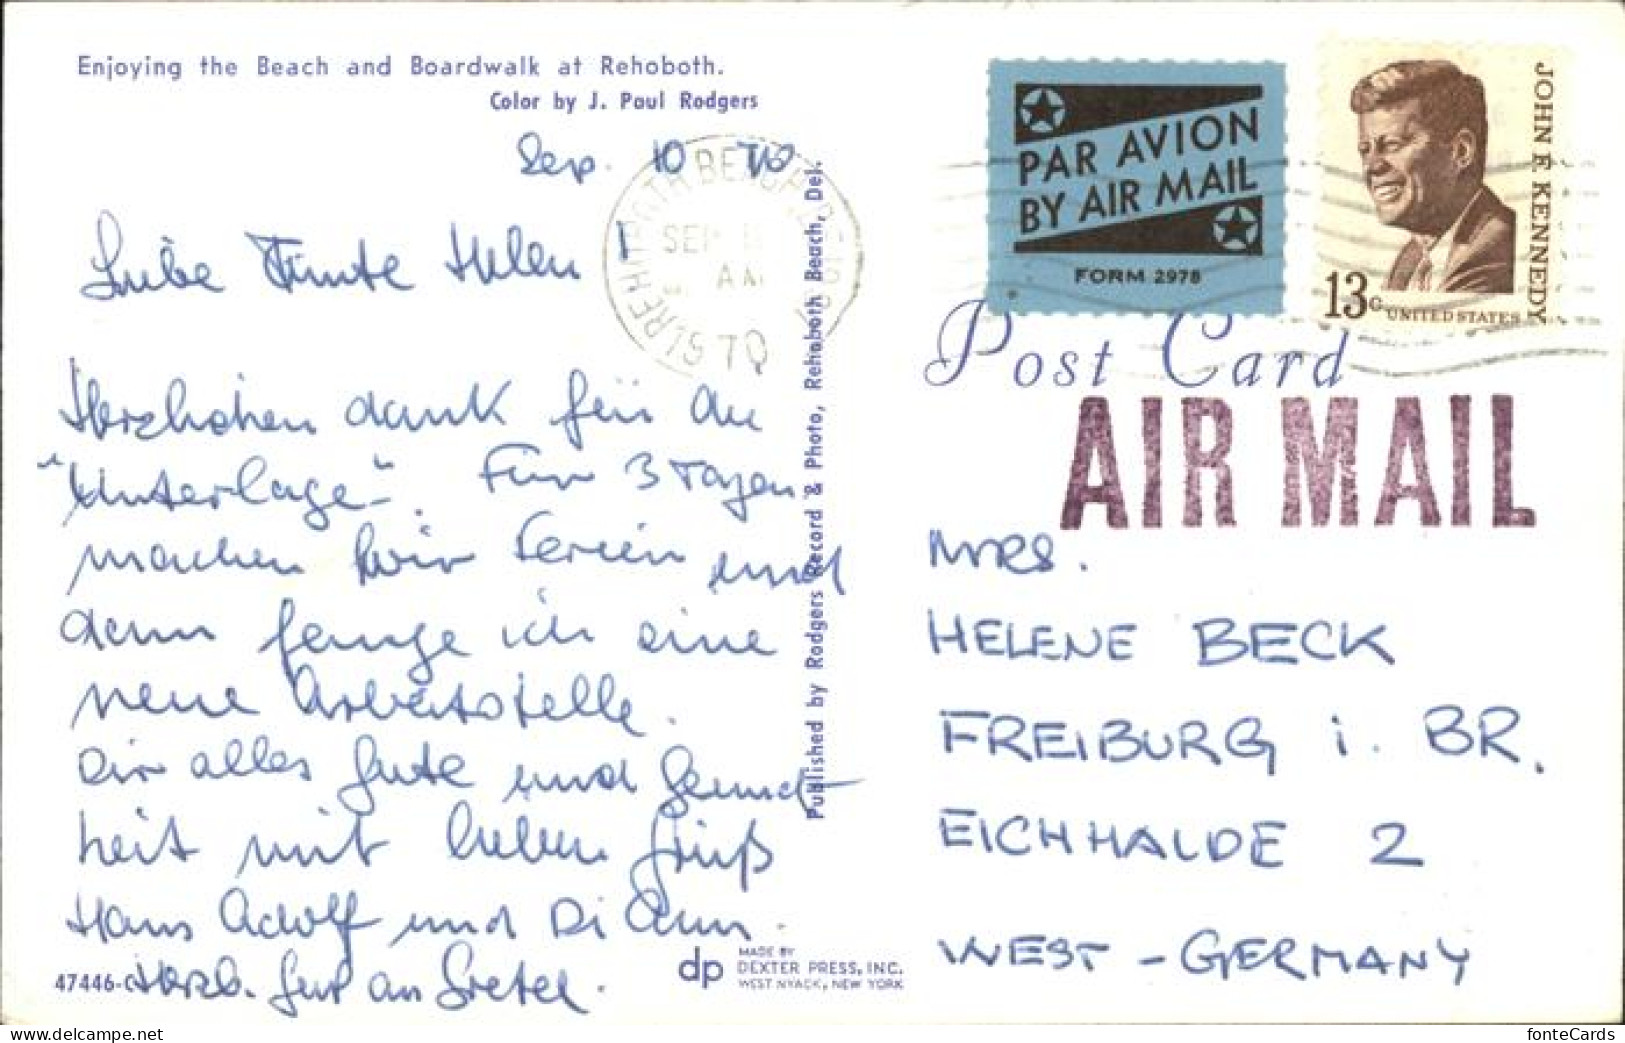 Enjoying the Beach and Boardwalk at Rehoboth.
Color by J. Paul Rodgers
Sep. 10 70
Liebe Tante Helen !
Herzlichen dank für die
"Unterlage". Für 3 Tagen
machen wir Ferien und
dann fange ich eine
neue Arbeitsstelle.
Dir alles gute und Gesund-
heit mit lieben Grüß
Hans Adolf und Di Ann.
Herzl. Gruß an Gretel.
47446-C
dp MADE BY
DEXTER PRESS, INC.
WEST NYACK, NEW YORK
Published by Rodgers Record & Photo, Rehoboth Beach, Del.
REHOBOTH BEACH, DEL
SEP
AM
70
PAR AVION
BY AIR MAIL
FORM 2978
JOHN F. KENNEDY
13c UNITED STATES
Post Card
AIR MAIL
MRS.
HELENE BECK
FREIBURG i. BR.
EICHHALDE 2
WEST - GERMANY
www.delcampe.net
fonteCards